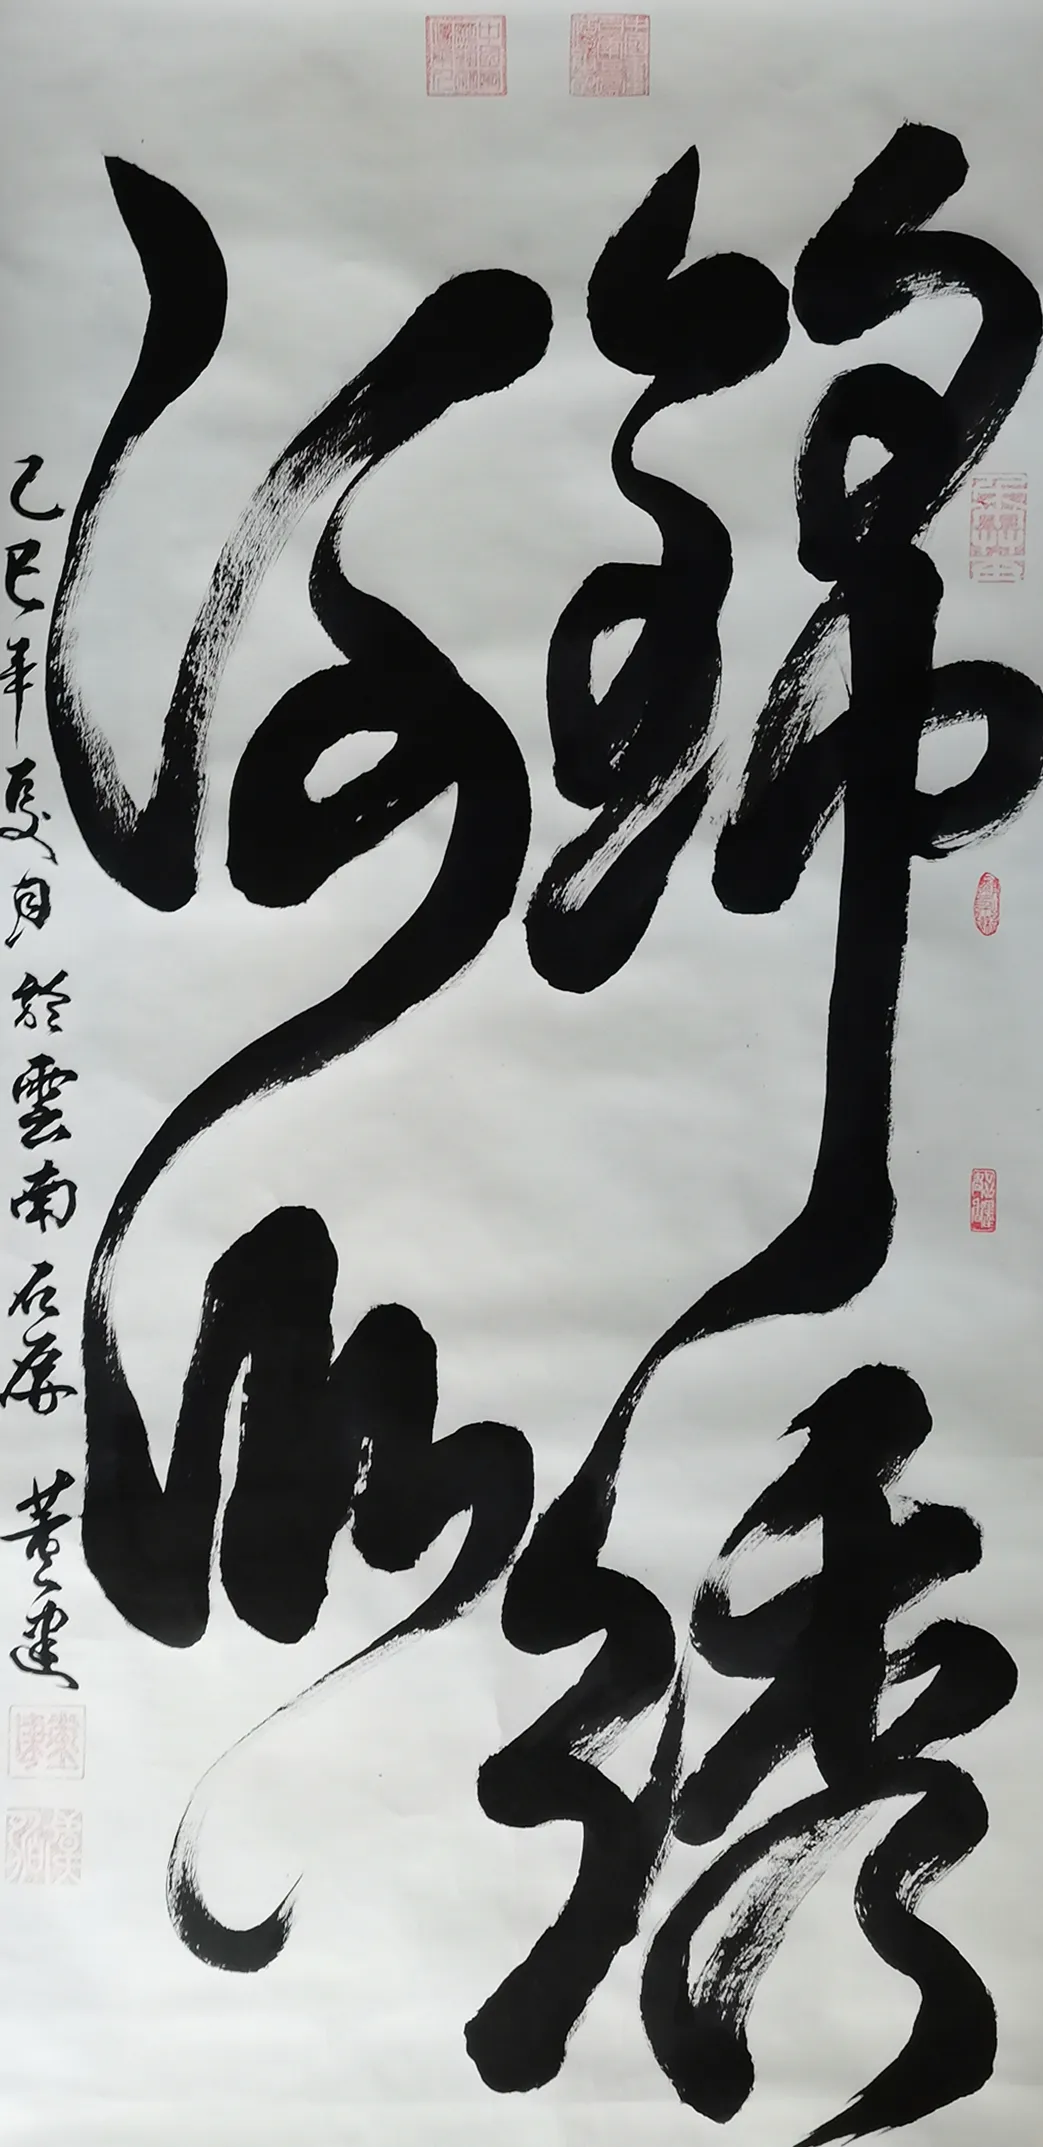 錦繡
河山
乙巳年夏月於雲南石屏 董建